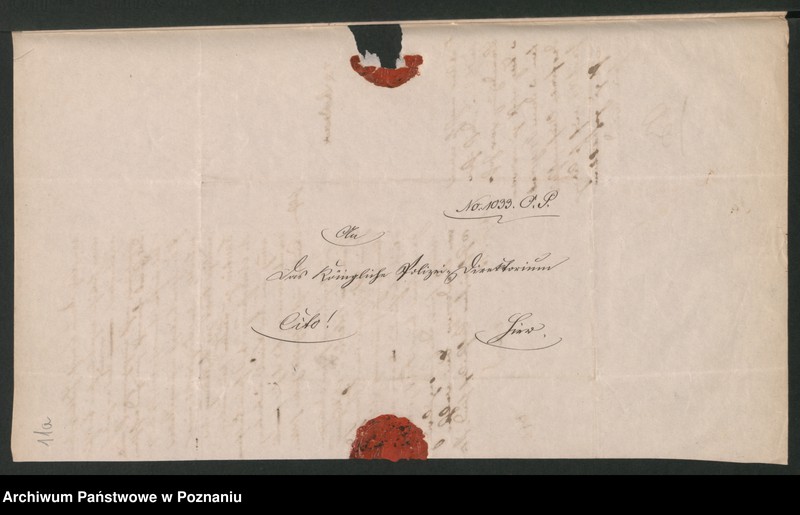 No. 1033. O. P.
An
Das Königliche Polizei-Direktorium
Cito!
Hier.
11a
Archiwum Państwowe w Poznaniu